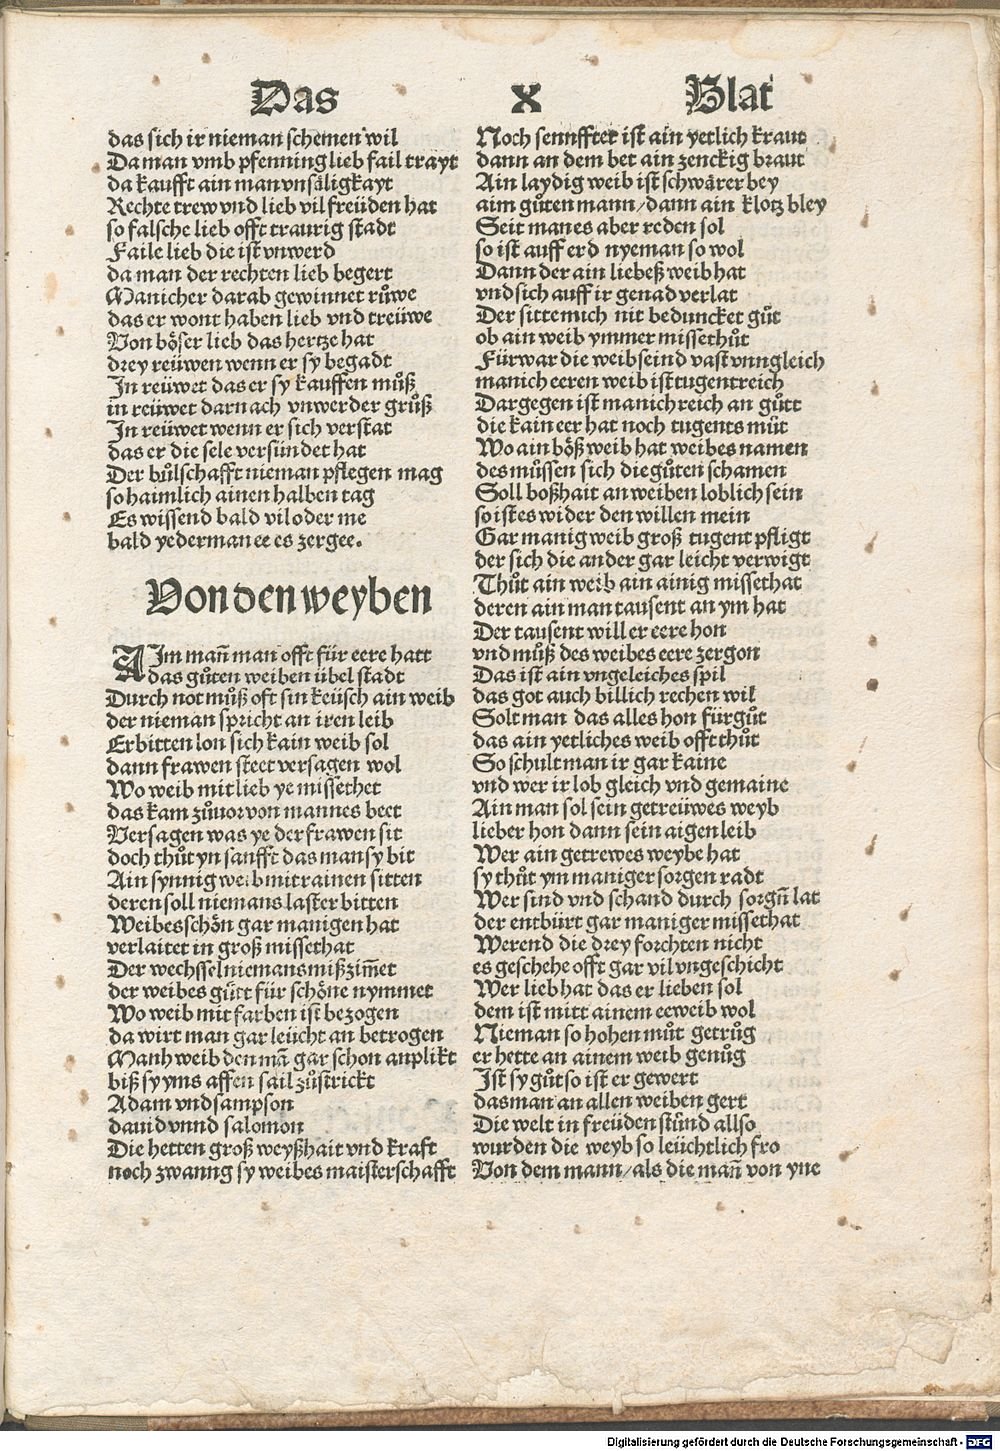 Das x Blat
das sich ir nieman schemen wil
Da man vmb pfenning lieb fail trayt
da kaufft ain man vnsäligkayt
Rechte trew vnd lieb vil freüden hat
so falsche lieb offt traurig stadt
Faile lieb die ist vnwerd
da man der rechten lieb begert
Manicher darab gewinnet růwe
das er wont haben lieb vnd treüwe
Von böser lieb das hertze hat
drey reüwen wenn er sy begadt
In reüwet das er sy kauffen můß
in reüwet darnach vnwerder grůß
In reüwet wenn er sich verstat
das er die sele versündet hat
Der bůlschafft nieman pflegen mag
so haimlich ainen halben tag
Es wissend bald vil oder me
bald yederman ee es zergee.
Von den weyben
AIm man̄ man offt für eere hatt
das gůten weiben übel stadt
Durch not můß oft sin keüsch ain weib
der nieman spricht an iren leib
Erbitten lon sich kain weib sol
dann frawen steet versagen wol
Wo weib mit lieb ye missethet
das kam zůuor von mannes beet
Versagen was ye der frawen sit
doch thůt yn sanfft das man sy bit
Ain synnig weib mit rainen sitten
deren soll niemans laster bitten
Weibes schön gar manigen hat
verlaitet in groß missethat
Der wechssel niemans mißzim̄et
der weibes gütt für schöne nymmet
Wo weib mit farben ist bezogen
da wirt man gar leücht an betrogen
Manh weib den mā gar schon anplikt
biß sy yms affen sail zůstrickt
Adam vnd sampson
dauid vnnd salomon
Die hetten groß weyßhait vnd kraft
noch zwanng sy weibes maisterschafft
Noch sennffter ist ain yetlich kraut
dann an dem bet ain zenckig braut
Ain laydig weib ist schwärer bey
aim gůten mann/dann ain klotz bley
Seit man es aber reden sol
so ist auff erd nyeman so wol
Dann der ain liebeß weib hat
vnd sich auff ir genad verlat
Der sitte mich nit beduncket gůt
ob ain weib ymmer missethůt
Fürwar die weib seind vast vnngleich
manich eeren weib ist tugentreich
Dargegen ist manich reich an gůtt
die kain eer hat noch tugents můt
Wo ain böß weib hat weibes namen
des můssen sich die gůten schamen
Soll boßhait an weiben loblich sein
so ist es wider den willen mein
Gar manig weib groß tugent pfligt
der sich die ander gar leicht verwigt
Thůt ain weib ain ainig missethat
deren ain man tausent an ym hat
Der tausent will er eere hon
vnd můß des weibes eere zergon
Das ist ain vngeleiches spil
das got auch billich rechen wil
Solt man das alles hon fürgůt
das ain yetliches weib offt thůt
So schult man ir gar kaine
vnd wer ir lob gleich vnd gemaine
Ain man sol sein getreüwes weyb
lieber hon dann sein aigen leib
Wer ain getrewes weybe hat
sy thůt ym maniger sorgen radt
Wer sind vnd schand durch sorgn̄ lat
der entbürt gar maniger missethat
Werend die drey forchten nicht
es geschehe offt gar vil vngeschicht
Wer lieb hat das er lieben sol
dem ist mitt ainem eeweib wol
Nieman so hohen můt getrůg
er hette an ainem weib genůg
Ist sy gůt so ist er gewert
das man an allen weiben gert
Die welt in freüden stůnd allso
wurden die weyb so leüchtlich fro
Von dem mann/als die man̄ von yne
Digitalisierung gefördert durch die Deutsche Forschungsgemeinschaft - DFG